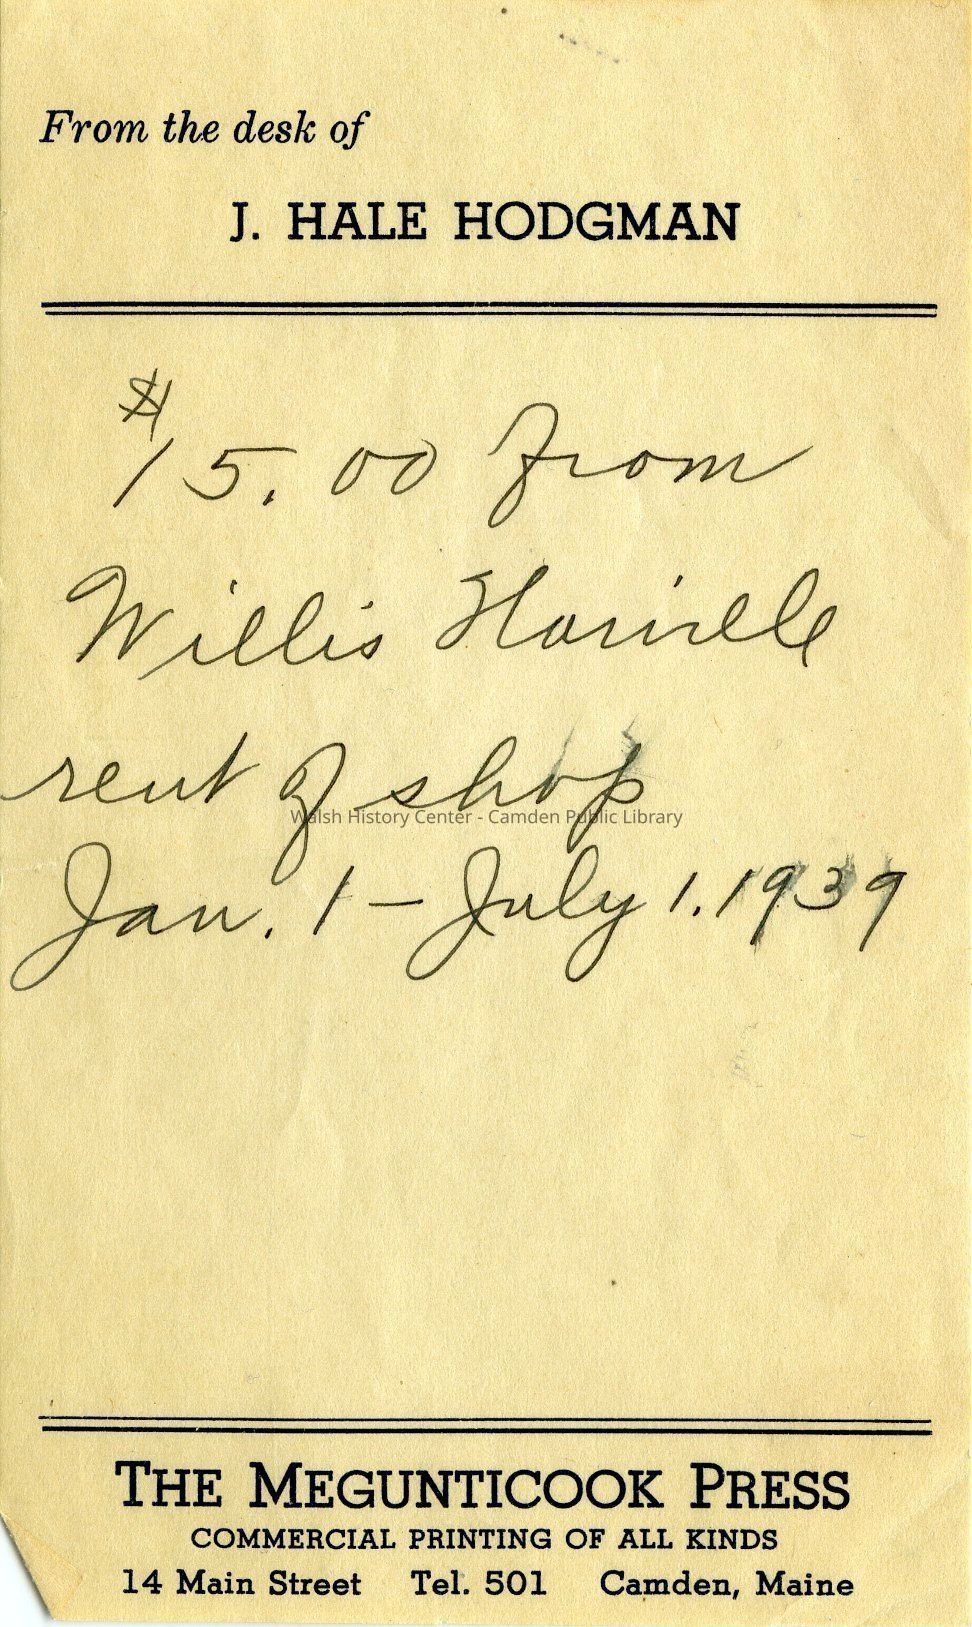 From the desk of
J. HALE HODGMAN
$15.00 from
Willis
rent of shop
Walsh History Center - Camden Public Library
Jan. 1 - July 1. 1939
THE MEGUNTICOOK PRESS
COMMERCIAL PRINTING OF ALL KINDS
14 Main Street Tel. 501 Camden, Maine